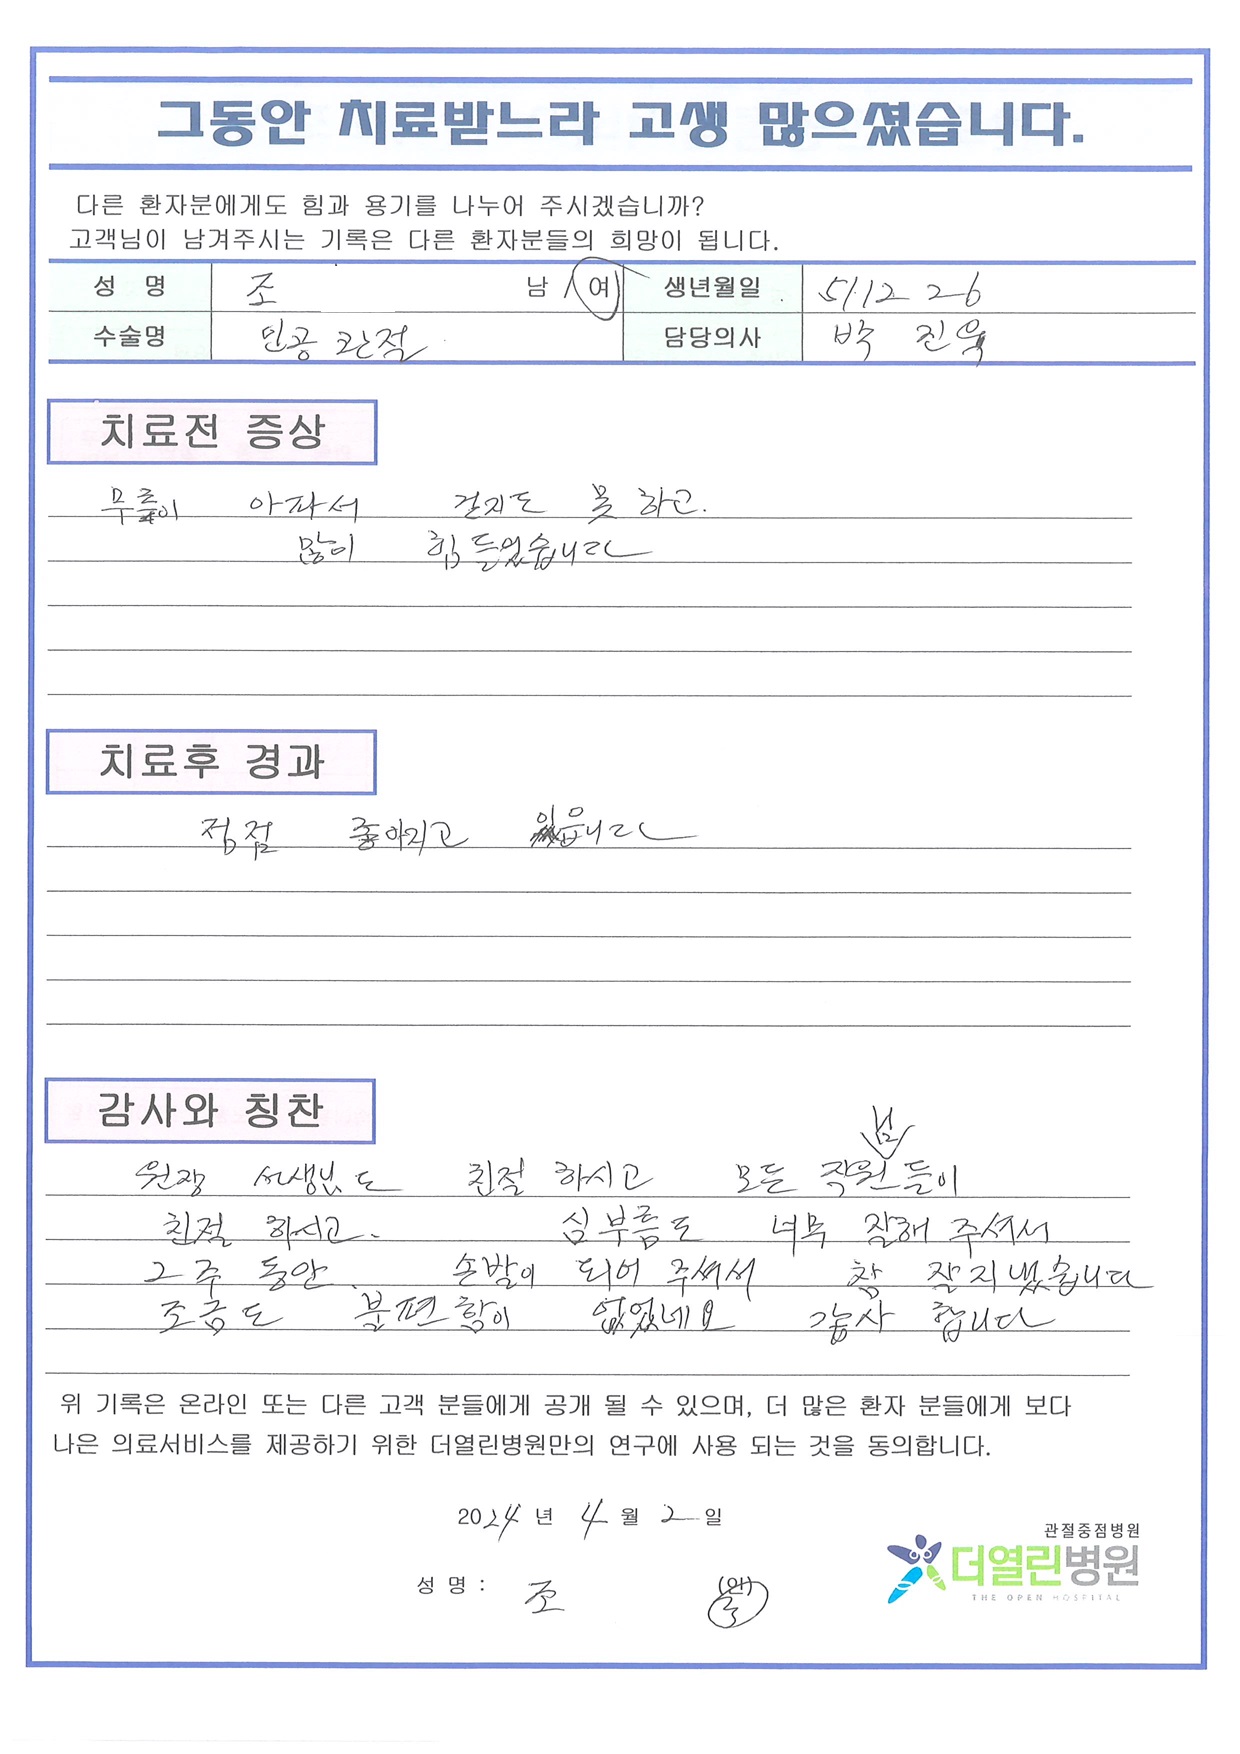 그동안 치료받느라 고생 많으셨습니다.
다른 환자분에게도 힘과 용기를 나누어 주시겠습니까?
고객님이 남겨주시는 기록은 다른 환자분들의 희망이 됩니다.
성 명 조 남 / 여 생년월일 511226
수술명 인공관절 담당의사 박진욱
치료전 증상
무릎이 아파서 걷지도 못하고.
많이 힘들었습니다
치료후 경과
점점 좋아지고 있읍니다
감사와 칭찬
원장 선생님도 친절하시고 모든 직원님들이
친절하시고. 심부름도 너무 잘해 주셔서
2주 동안. 손발이 되어 주셔서 참 잘 지냈습니다
조금도 불편함이 없었네요 감사합니다
위 기록은 온라인 또는 다른 고객 분들에게 공개 될 수 있으며, 더 많은 환자 분들에게 보다
나은 의료서비스를 제공하기 위한 더열린병원만의 연구에 사용 되는 것을 동의합니다.
2024 년 4 월 2 일
관절중점병원
더열린병원
THE OPEN HOSPITAL
성 명 : 조